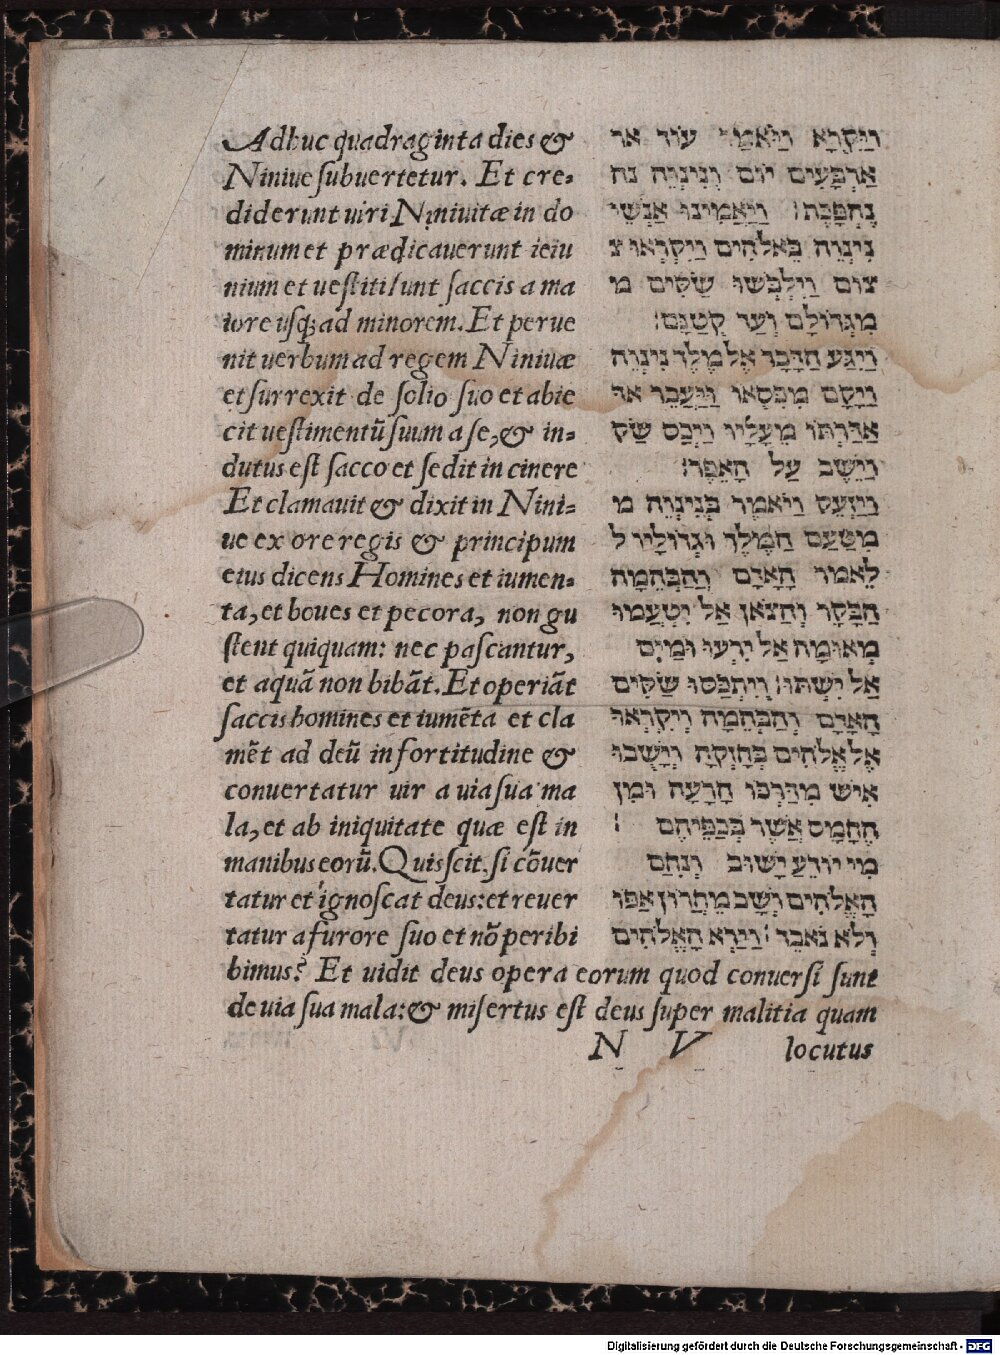 Adhuc quadraginta dies &
Niniue subuertetur. Et cre-
diderunt uiri Niniuitæ in do
minum et prædicauerunt ieiu
nium et uestiti sunt saccis a ma
iore usq; ad minorem. Et perue
nit uerbum ad regem Niniuæ
et surrexit de solio suo et abie
cit uestimentũ suum a se, & in-
dutus est sacco et sedit in cinere
Et clamauit & dixit in Nini-
ue ex ore regis & principum
eius dicens Homines et iumen-
ta, et boues et pecora, non gu
stent quiquam: nec pascantur,
et aquã non bibãt. Et operiãt
saccis homines et iumẽta et cla
mẽt ad deũ in fortitudine &
conuertatur uir a uia sua ma
la, et ab iniquitate quæ est in
manibus eorũ. Quis scit, si cõuer
tatur et ignoscat deus: et reuer
tatur a furore suo et nõ peribi
bimus? Et uidit deus opera eorum quod conuersi sunt
de uia sua mala: & misertus est deus super malitia quam
N V locutus
וַיִּקְרָא וַיֹּאמַר עוֹד אר
אַרְבָּעִים יוֹם וְנִינְוֵה נה
נֶהְפָּכֶת׃ וַיַּאֲמִינוּ אַנְשֵׁי
נִינְוֵה בֵּאלֹהִים וַיִּקְרְאוּ צ
צוֹם וַיִּלְבְּשׁוּ שַׂקִּים מ
מִגְּדוֹלָם וְעַד קְטַנָּם׃
וַיִּגַּע הַדָּבָר אֶל מֶלֶך נִינְוֵה
וַיָּקָם מִכִּסְאוֹ וַיַּעֲבֵר אד
אַדַּרְתּוֹ מֵעָלָיו וַיְכַס שַׂק
וַיֵּשֶׁב עַל הָאֵפֶר׃
וַיַּזְעֵק וַיֹּאמֶר בְּנִינְוֵה מ
מִטַּעַם הַמֶּלֶך וּגְדוֹלָיו ל
לֵאמֹר הָאָדָם וְהַבְּהֵמָה
הַבָּקָר וְהַצֹּאן אַל יִטְעֲמוּ
מְאוּמָה אַל יִרְעוּ וּמַיִם
אַל יִשְׁתּוּ׃ וְיִתְכַּסּוּ שַׂקִּים
הָאָדָם וְהַבְּהֵמָה וְיִקְרְאוּ
אֶל אֱלֹהִים בְּחָזְקָה וְיָשֻׁבוּ
אִישׁ מִדַּרְכּוֹ הָרָעָה וּמִן
הֶחָמָס אֲשֶׁר בְּכַפֵּיהֶם ׃
מִי יוֹדֵעַ יָשׁוּב וְנִחַם
הָאֱלֹהִים וְשָׁב מֵחֲרוֹן אַפּוֹ
וְלֹא נֹאבֵד ׃ וַיַּרְא הָאֱלֹהִים
Digitalisierung gefördert durch die Deutsche Forschungsgemeinschaft - DFG